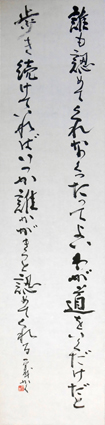 誰も認めてくれなくったってよいわが道をいくだけだと
歩き続けていればいつか誰かがきっと認めてくれる